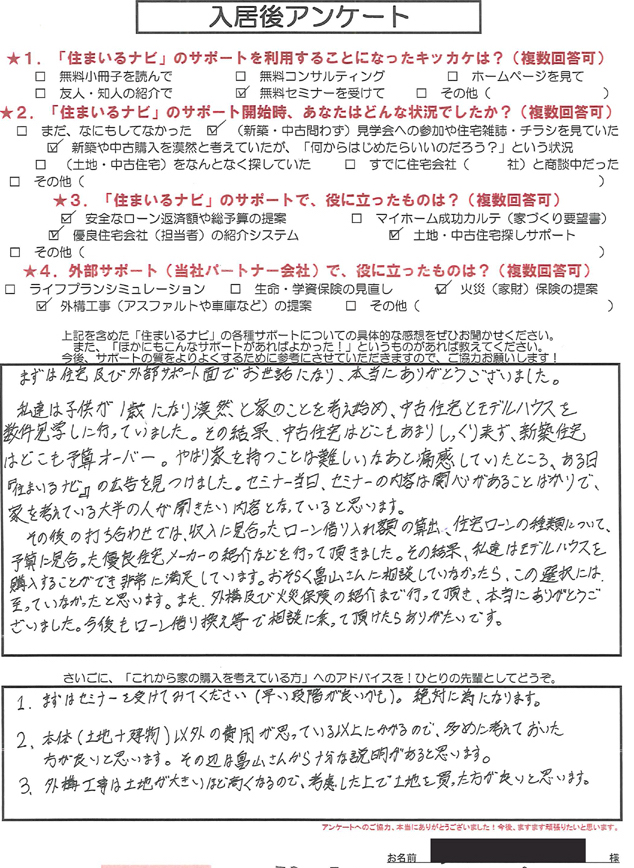 入居後アンケート
★1．「住まいるナビ」のサポートを利用することになったキッカケは？（複数回答可）
□ 無料小冊子を読んで □ 無料コンサルティング □ ホームページを見て
□ 友人・知人の紹介で ☑ 無料セミナーを受けて □ その他（ ）
★2．「住まいるナビ」のサポート開始時、あなたはどんな状況でしたか？（複数回答可）
□ まだ、なにもしてなかった ☑ （新築・中古問わず）見学会への参加や住宅雑誌・チラシを見ていた
☑ 新築や中古購入を漠然と考えていたが、「何からはじめたらいいのだろう？」という状況
□ （土地・中古住宅）をなんとなく探していた □ すでに住宅会社（ 社）と商談中だった
□ その他（ ）
★3．「住まいるナビ」のサポートで、役に立ったものは？（複数回答可）
☑ 安全なローン返済額や総予算の提案 □ マイホーム成功カルテ（家づくり要望書）
☑ 優良住宅会社（担当者）の紹介システム ☑ 土地・中古住宅探しサポート
□ その他（ ）
★4．外部サポート（当社パートナー会社）で、役に立ったものは？（複数回答可）
□ ライフプランシミュレーション □ 生命・学資保険の見直し ☑ 火災（家財）保険の提案
☑ 外構工事（アスファルトや車庫など）の提案 □ その他（ ）
上記を含めた「住まいるナビ」の各種サポートについての具体的な感想をぜひお聞かせください。
また、「ほかにもこんなサポートがあればよかった！」というものがあれば教えてください。
今後、サポートの質をよりよくするために参考にさせていただきますので、ご協力お願いします！
まずは住宅及び外部サポート面でお世話になり、本当にありがとうございました。
私達は子供が1歳になり漠然と家のことを考え始め、中古住宅とモデルハウスを
数件見学しに行っていました。その結果、中古住宅はどこもあまりしっくり来ず、新築住宅
はどこも予算オーバー。やはり家を持つことは難しいなあと痛感していたところ、ある日
『住まいるナビ』の広告を見つけました。セミナー当日、セミナーの内容は関心があることばかりで、
家を考えている大半の人が聞きたい内容となっていると思います。
その後の打ち合わせでは、収入に見合ったローン借り入れ額の算出、住宅ローンの種類について、
予算に見合った優良住宅メーカーの紹介などを行って頂きました。その結果、私達はモデルハウスを
購入することができ非常に満足しています。おそらく畠山さんに相談していなかったら、この選択には
至っていなかったと思います。また、外構及び火災保険の紹介まで行って頂き、本当にありがとうご
ざいました。今後もローン借り換え等で相談に乗って頂けたらありがたいです。
さいごに、「これから家の購入を考えている方」へのアドバイスを！ひとりの先輩としてどうぞ。
1. まずはセミナーを受けてみてください（早い段階が良いかも）。絶対に為になります。
2. 本体（土地＋建物）以外の費用が思っている以上にかかるので、多めに考えておいた
方が良いと思います。その辺は畠山さんから十分な説明があると思います。
3. 外構工事は土地が大きいほど高くなるので、考慮した上で土地を買った方が良いと思います。
アンケートへのご協力、本当にありがとうございました！今後、ますます頑張りたいと思います。
お名前 様